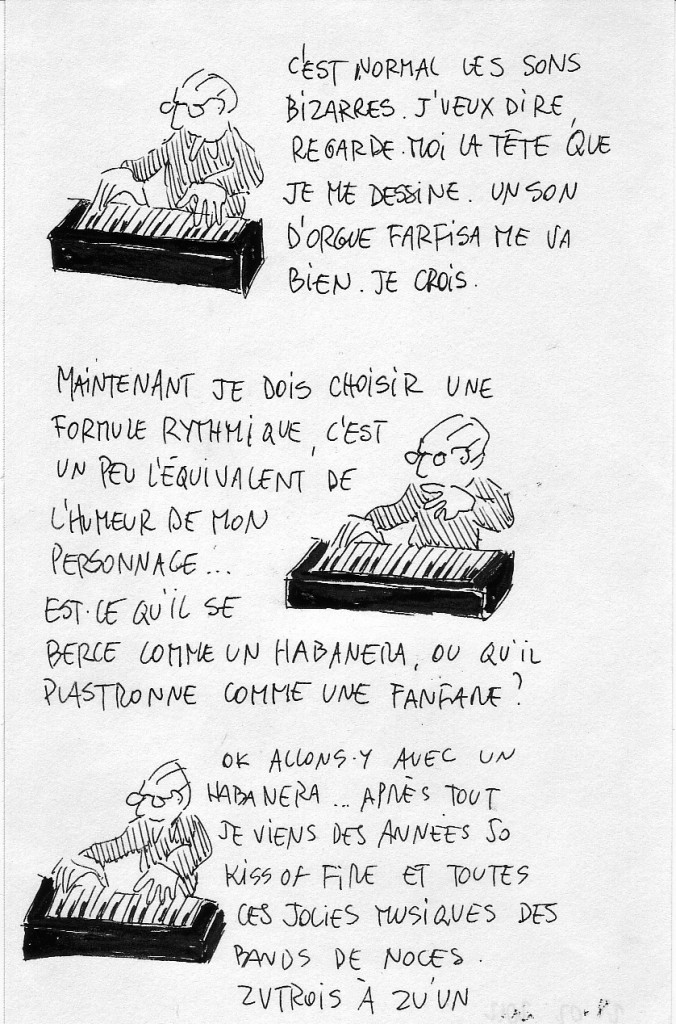 C'EST NORMAL LES SONS
BIZARRES. J'VEUX DIRE,
REGARDE-MOI LA TÊTE QUE
JE ME DESSINE. UN SON
D'ORGUE FARFISA ME VA
BIEN. JE CROIS.
MAINTENANT JE DOIS CHOISIR UNE
FORMULE RYTHMIQUE, C'EST
UN PEU L'ÉQUIVALENT DE
L'HUMEUR DE MON
PERSONNAGE...
EST-CE QU'IL SE
BERCE COMME UN HABANERA, OU QU'IL
PLASTRONNE COMME UNE FANFARE?
OK ALLONS-Y AVEC UN
HABANERA... APRÈS TOUT
JE VIENS DES ANNÉES 50
KISS OF FIRE ET TOUTES
CES JOLIES MUSIQUES DES
BANDS DE NOCES.
ZUTROIS À ZU'UN